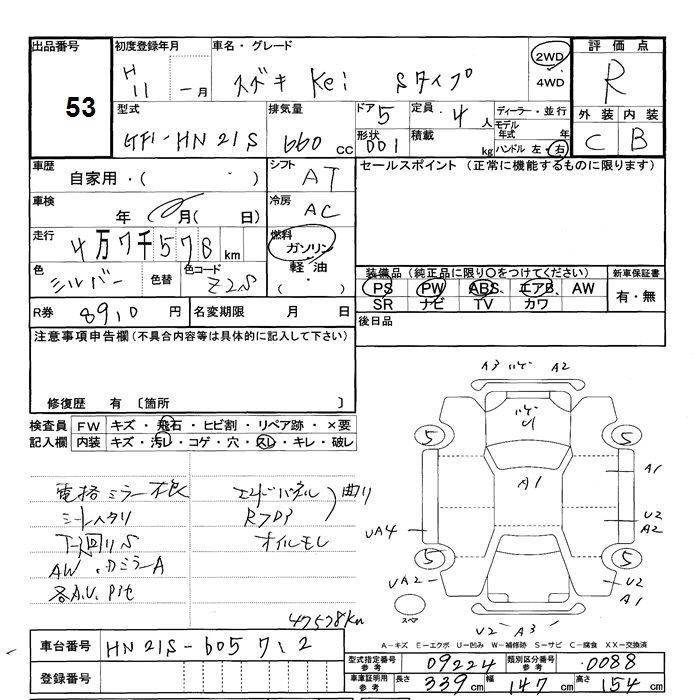 出品番号 初度登録年月 車名・グレード 評価点
53 H 11 - 月 スズキ Kei Sタイプ 2WD 4WD R
型式 排気量 ドア 5 定員 4 人 ディーラー・並行 外装 内装
HN21S 660 cc 形状 001 積載 kg モデル年式 年 ハンドル 左・右 C B
車歴 自家用・( ・ ) シフト AT セールスポイント (正常に機能するものに限ります)
車検 年 月( 日) 冷房 AC
走行 4万7千578 km 燃料 ガソリン
色 シルバー 色替 色コード Z2S 軽油 ( ・ )
装備品 (純正品に限り○をつけてください) 新車保証書
PS PW ABS エアB AW 有・無
SR ナビ TV カワ
R券 8910 円 名変期限 月 日 後日品
注意事項申告欄(不具合内容等は具体的に記入して下さい)
修復歴 有 〔箇所 〕
検査員 FW キズ・飛石・ヒビ割・リペア跡・×要
記入欄 内装 キズ・汚レ・コゲ・穴・スレ・キレ・破レ
電格ミラー不良 エンドパネル 曲り
シートヘタリ
下回りS オイルモレ
AW、
各A.U.
47578Km
A3 A2
A1
5 5
A1
U2
A2
UA4
5 5
UA2 U2
A1
スペア
U2 A3
A-キズ E-エクボ U-凹み W-補修跡 S-サビ C-腐食 XX-交換済
車台番号 HN21S-605712
登録番号
型式指定番号 参考 09224 類別区分番号 参考 0088
車庫証明用 参考 長さ 339 cm 幅 147 cm 高さ 154 cm